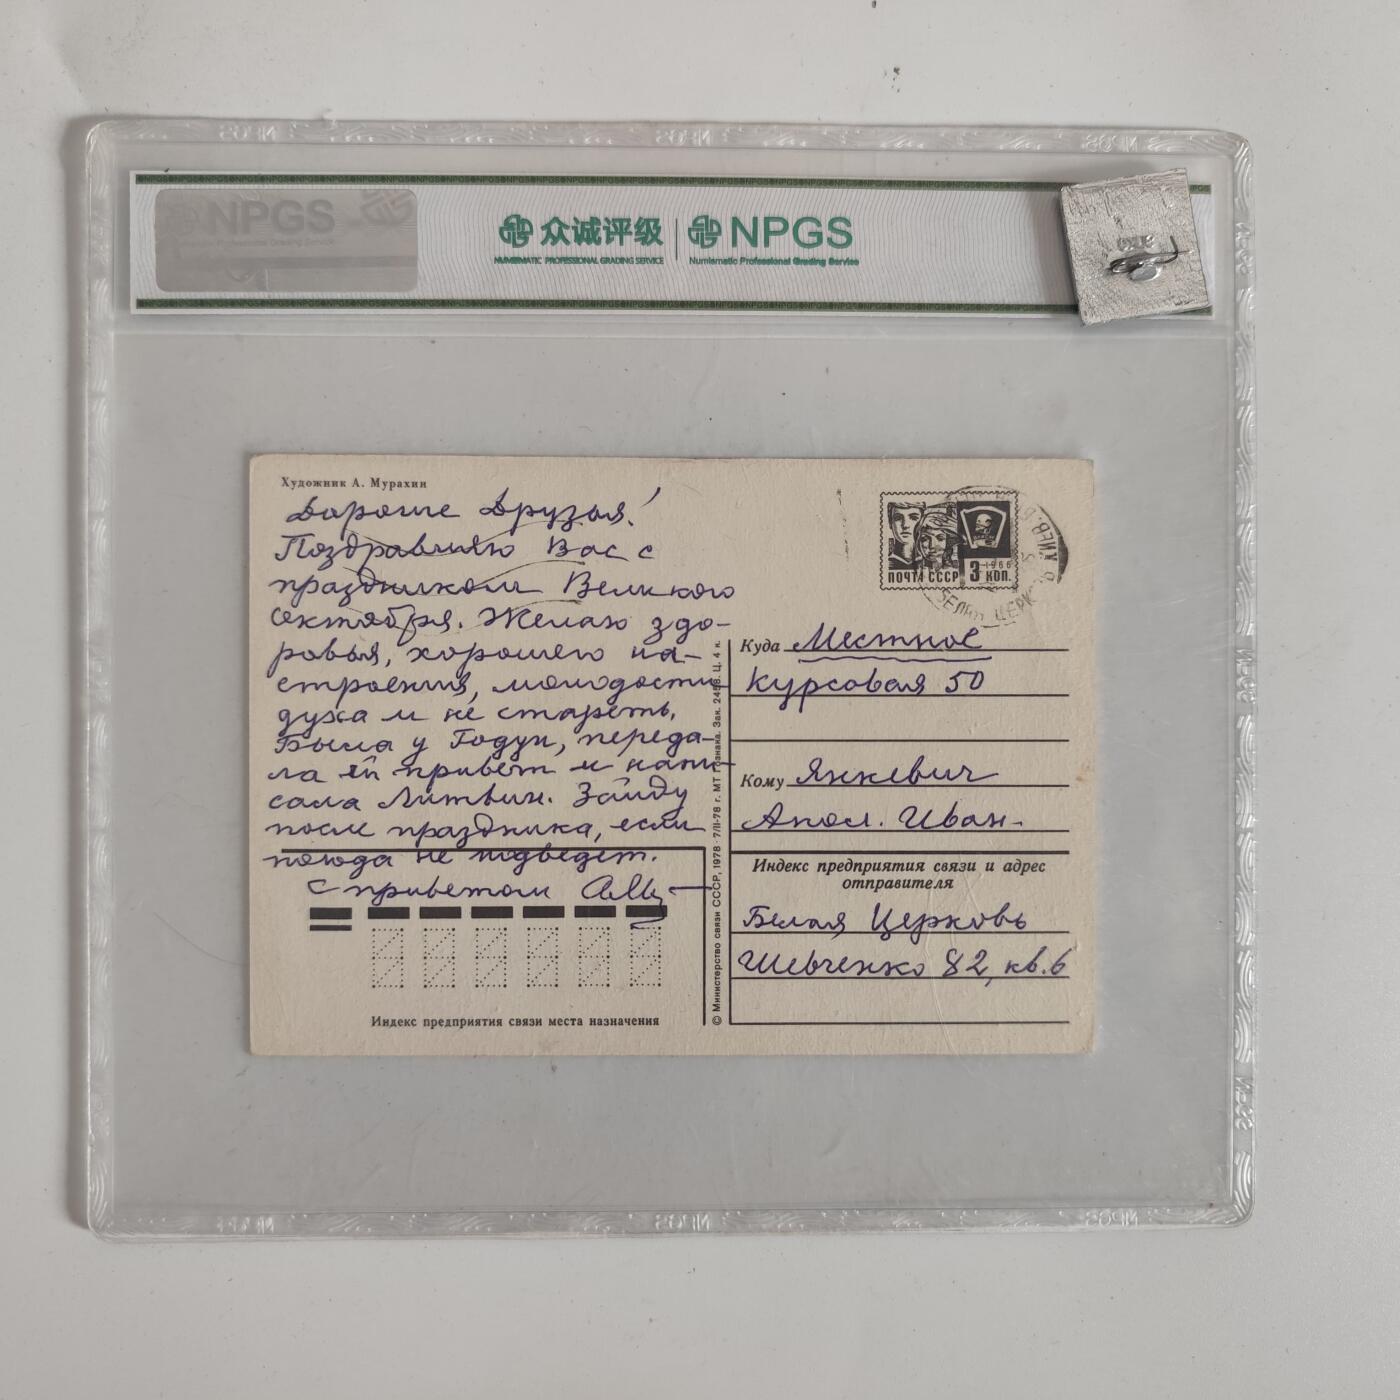 NPGS
众诚评级
NUMISMATIC PROFESSIONAL GRADING SERVICE
NPGS
Numismatic Professional Grading Service
Художник А. Мурахин
Дорогие друзья!
Поздравляю Вас с
праздником Великого
Октября. Желаю здо-
ровья, хорошего на-
строения, молодости
духа и не стареть.
Была у Годун, переда-
ла ей привет и напи-
сала Литвин. Зайду
после праздника, если
погода не подведет.
С приветом
Индекс предприятия связи места назначения
© Министерство связи СССР, 1978 · 7/II-78 г. МТ Гознака. Зак. 2458. Ц. 4 к.
1966
ПОЧТА СССР 3 КОП.
КИЕВ
БЕЛАЯ ЦЕРК
Куда Местное
Курсовая 50
Кому Янкевич
Апол. Иван.
Индекс предприятия связи и адрес
отправителя
Белая Церковь
Шевченко 82, кв. 6